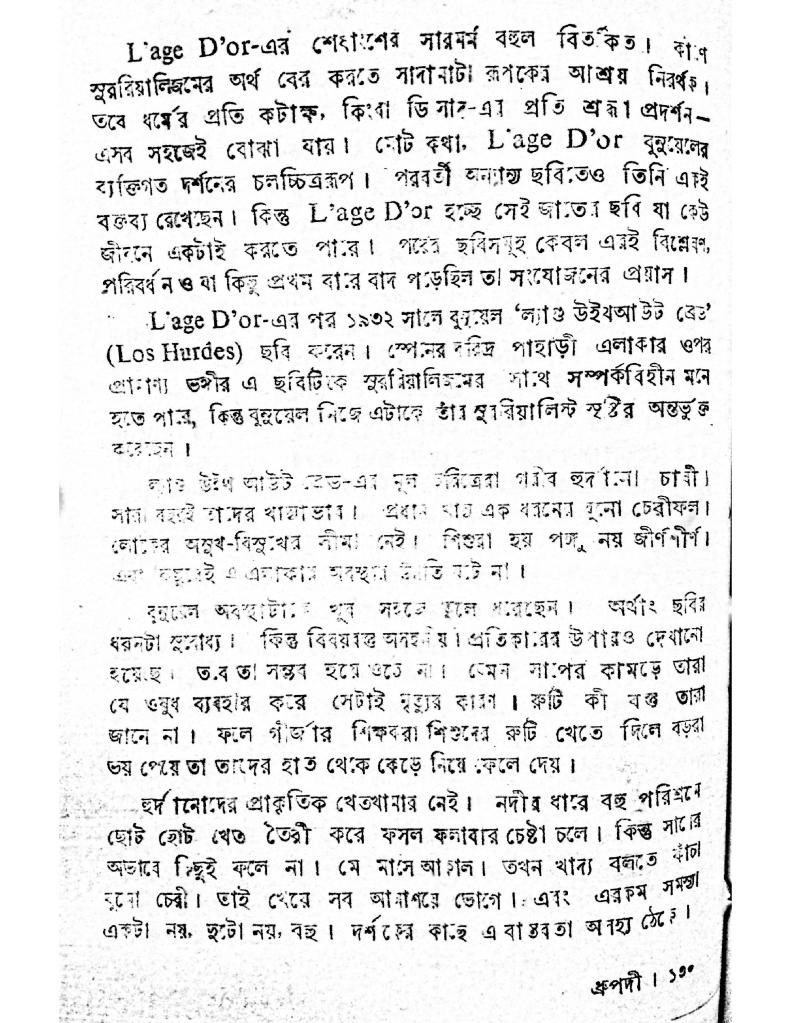 L'age D'or-এর শেষাংশের সারমর্ম বহুল বিতর্কিত। কারণ
সুররিয়ালিজমের অর্থ বের করতে সাদামাটা রূপকের আশ্রয় নিরর্থক।
তবে ধর্মের প্রতি কটাক্ষ, কিংবা ডি সাদ-এর প্রতি শ্রদ্ধা প্রদর্শন—
এসব সহজেই বোঝা যায়। মোট কথা, L'age D'or বুনুয়েলের
ব্যক্তিগত দর্শনের চলচ্চিত্ররূপ। পরবর্তী অন্যান্য ছবিতেও তিনি একই
বক্তব্য রেখেছেন। কিন্তু L'age D'or হচ্ছে সেই জাতের ছবি যা কেউ
জীবনে একটাই করতে পারে। পরের ছবিসমূহ কেবল এরই বিশ্লেষণ,
পরিবর্ধন ও যা কিছু প্রথম বারে বাদ পড়েছিল তা সংযোজনের প্রয়াস।
L'age D'or-এর পর ১৯৩২ সালে বুনুয়েল 'ল্যাণ্ড উইথআউট ব্রেড'
(Los Hurdes) ছবি করেন। স্পেনের দরিদ্র পাহাড়ী এলাকার ওপর
প্রামাণ্য ভঙ্গীর এ ছবিটিকে সুররিয়ালিজমের সাথে সম্পর্কবিহীন মনে
হতে পারে, কিন্তু বুনুয়েল নিজে এটাকে তাঁর সুররিয়ালিস্ট সৃষ্টির অন্তর্ভুক্ত
করেছেন।
ল্যাণ্ড উইথ আউট ব্রেড-এর মূল চরিত্রেরা গরীব হুর্দানো চাষী।
সারা বছরই তাদের খাদ্যাভাব। প্রধান খাদ্য এক ধরনের বুনো চেরীফল।
লোকের অসুখ-বিসুখের সীমা নেই। শিশুরা হয় পঙ্গু নয় জীর্ণশীর্ণ।
এবং কিছুতেই এ এলাকার অবস্থার উন্নতি ঘটে না।
বুনুয়েল অবস্থাটাকে খুব সহজে তুলে ধরেছেন। অর্থাৎ ছবির
ধরনটা সুবোধ্য। কিন্তু বিষয়বস্তু অসহনীয়। প্রতিকারের উপায়ও দেখানো
হয়েছে। তবে তা সম্ভব হয়ে ওঠে না। যেমন সাপের কামড়ে তারা
যে ওষুধ ব্যবহার করে সেটাই মৃত্যুর কারণ। রুটি কী বস্তু তারা
জানে না। ফলে গীর্জার শিক্ষকরা শিশুদের রুটি খেতে দিলে বড়রা
ভয় পেয়ে তা তাদের হাত থেকে কেড়ে নিয়ে ফেলে দেয়।
হুর্দানোদের প্রাকৃতিক খেতখামার নেই। নদীর ধারে বহু পরিশ্রমে
ছোট ছোট খেত তৈরী করে ফসল ফলাবার চেষ্টা চলে। কিন্তু সারের
অভাবে কিছুই ফলে না। মে মাসে আকাল। তখন খাদ্য বলতে কাঁচা
বুনো চেরী। তাই খেয়ে সব আমাশয়ে ভোগে। এবং এরকম সমস্যা
একটা নয়, দুটো নয়, বহু। দর্শকের কাছে এ বাস্তবতা অসহ্য ঠেকে।
ধ্রুপদী। ১৩০